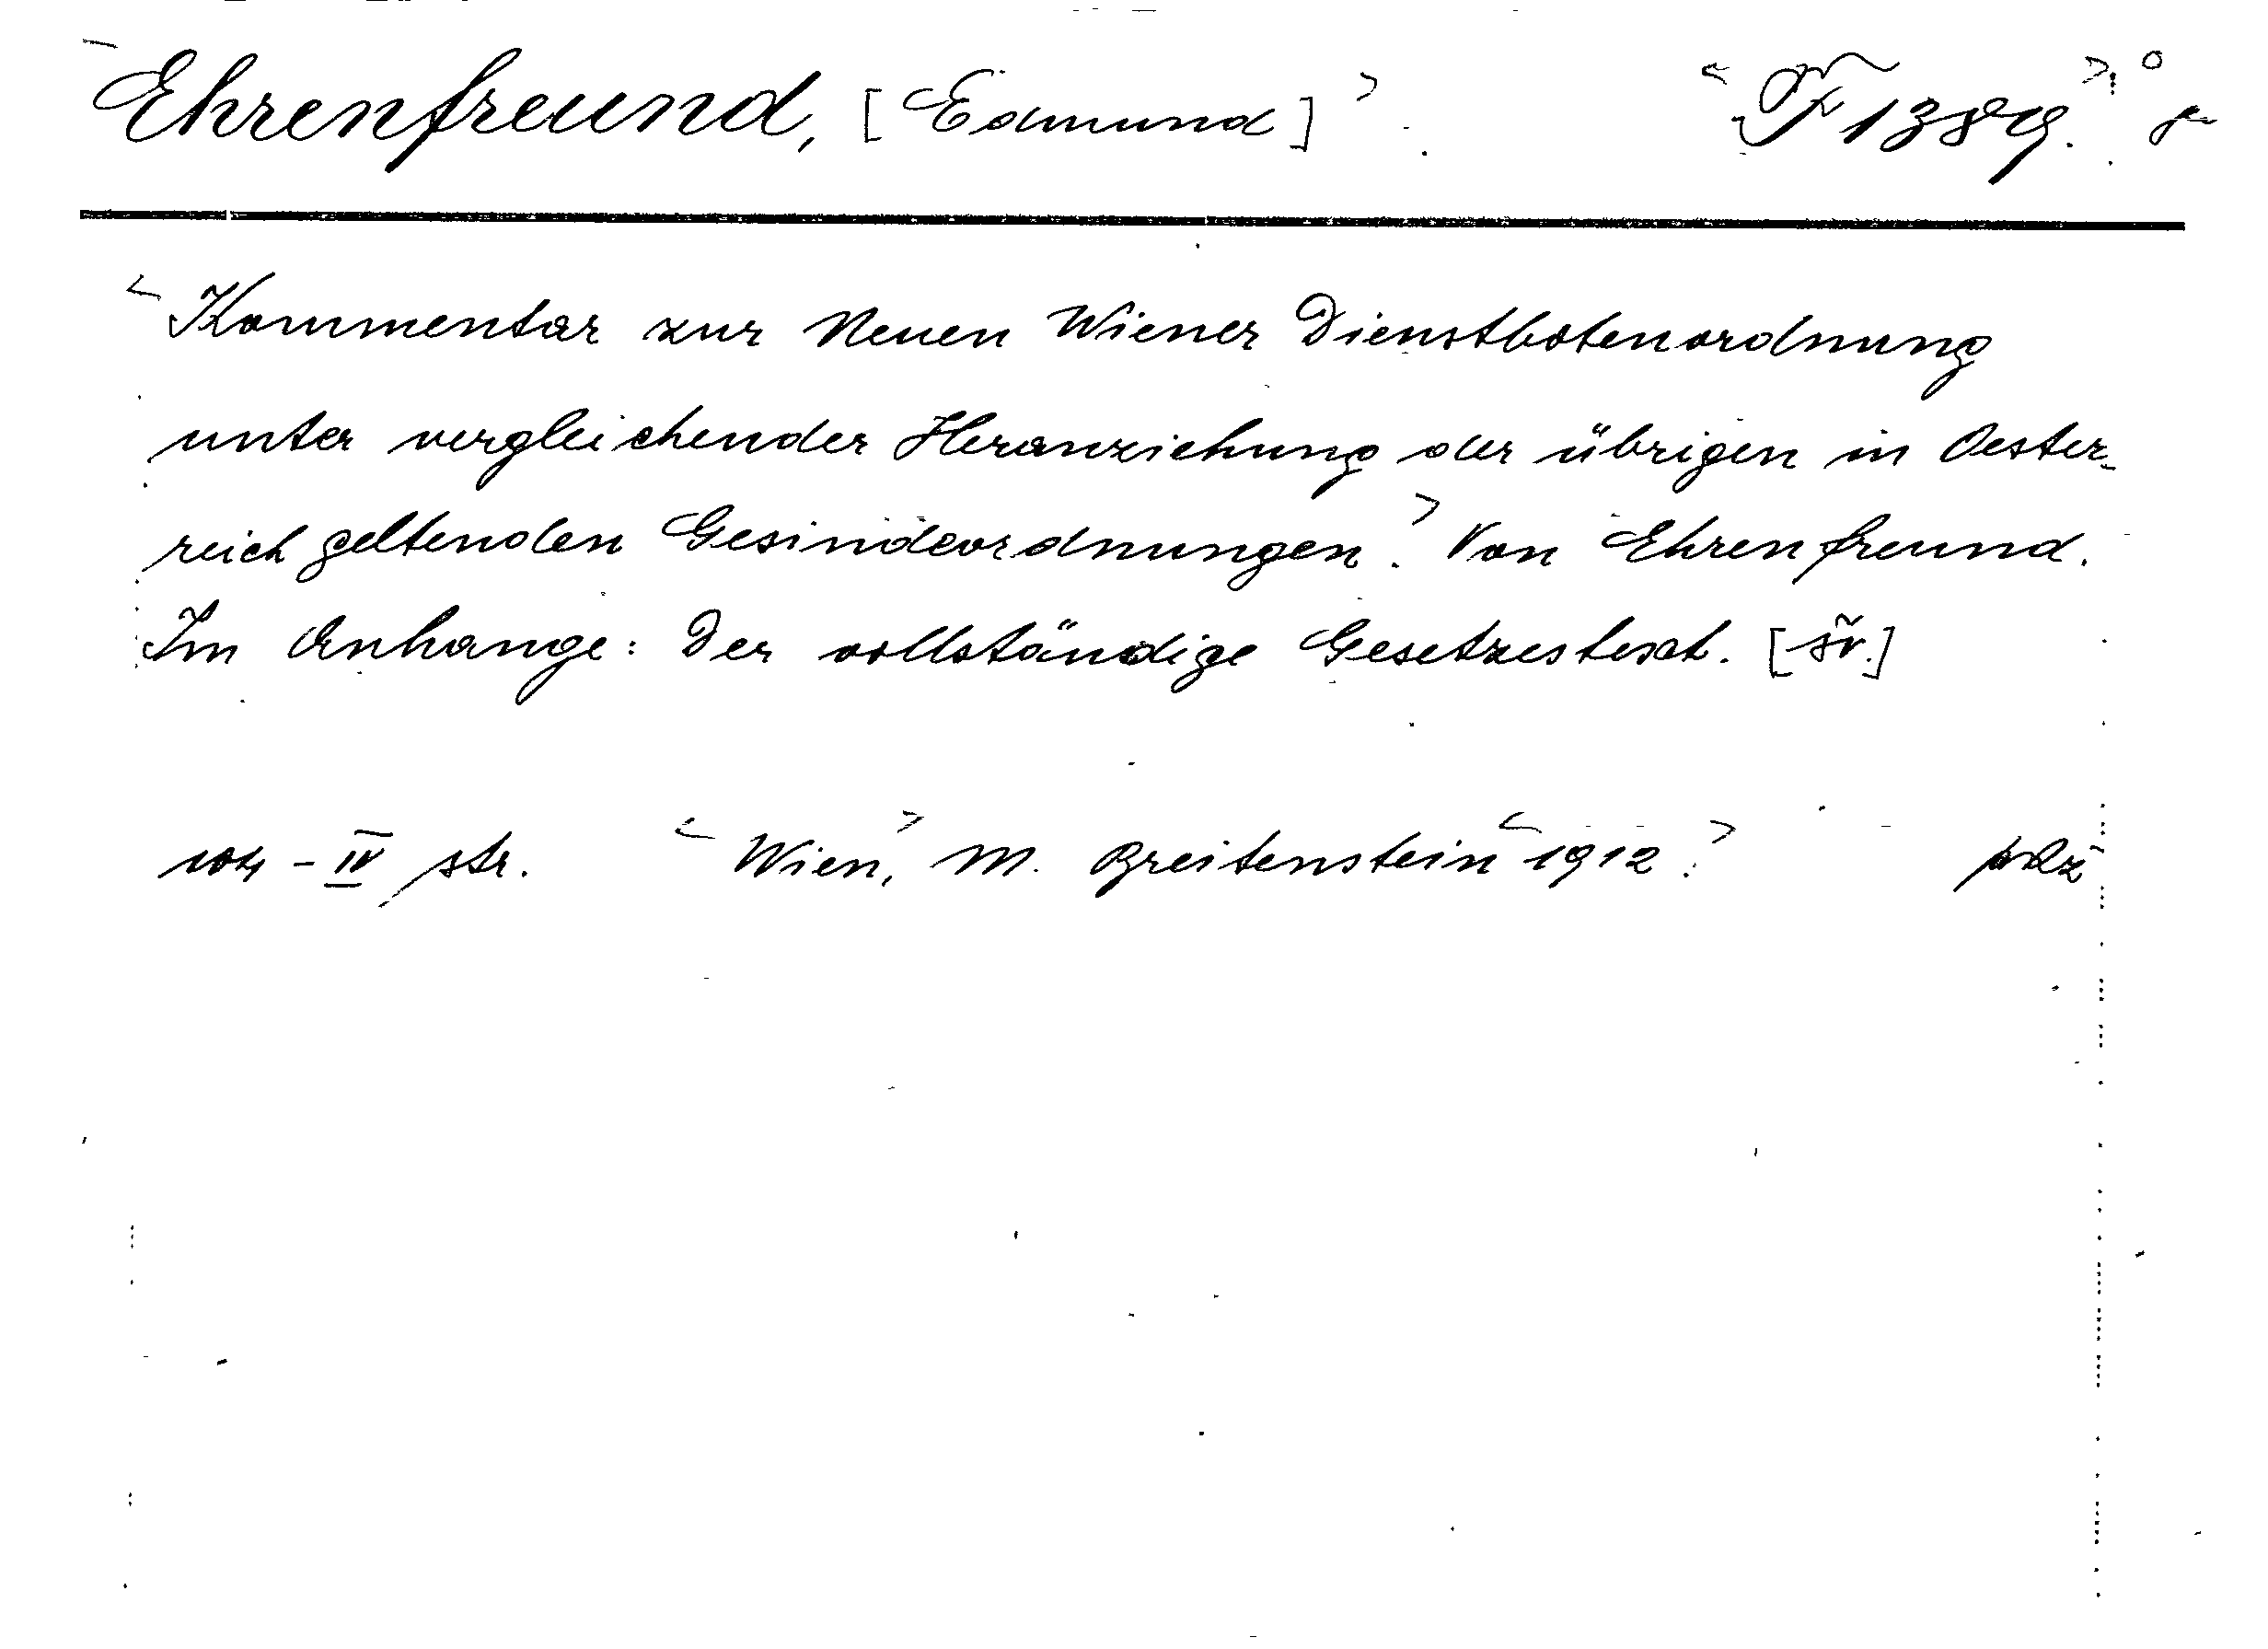 Ehrenfreund, [Edmund] F 1389.
Kommentar zur Neuen Wiener Dienstbotenordnung
unter vergleichender Heranziehung der übrigen in Oester-
reich geltenden Gesindeordnungen. Von Ehrenfreund.
Im Anhange: Der vollständige Gesetzestext. [šv.]
104 - IV str. Wien, M. Breitenstein 1912.